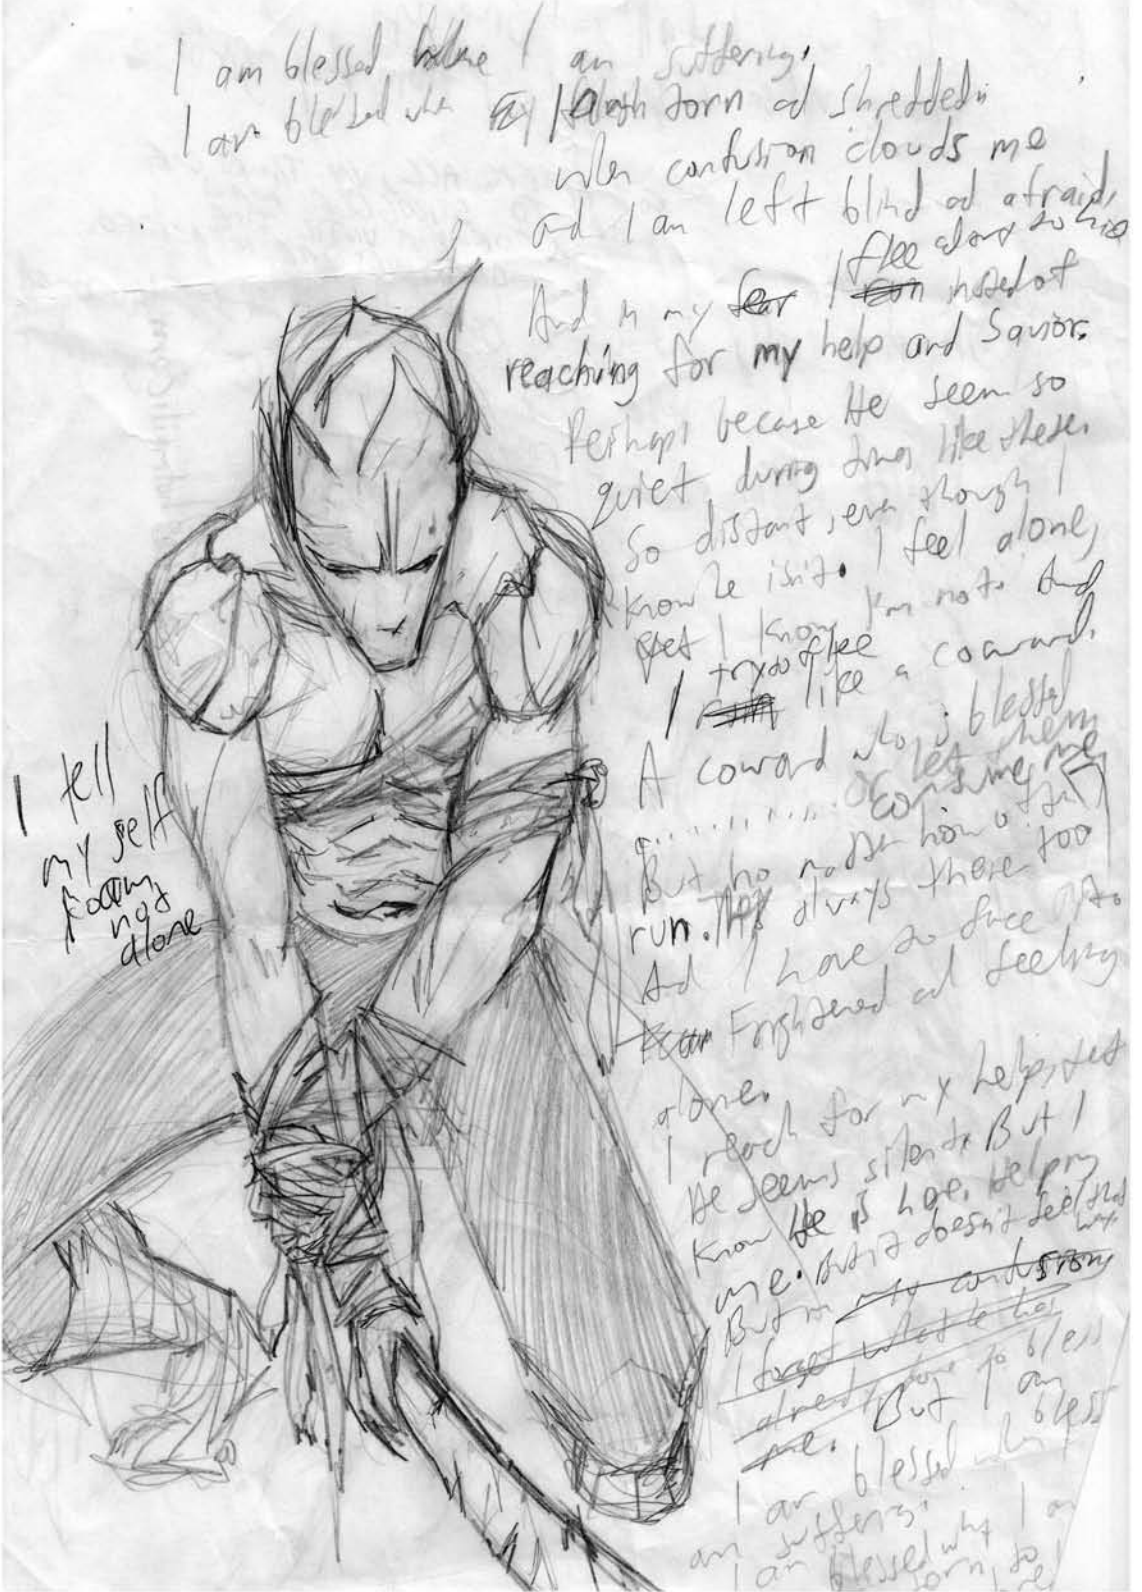 I am blessed I am suffering.
I am blessed when my torn ad shredded.
when confusion clouds me
and I am left blind ad afraid,
flee
And in my fear I run insted of
reaching for my help and Savior.
Perhaps because He seem so
quiet, during times like these.
So distant, even though I
know he isn't. I feel alone,
yet I know I'm not. And
try to flee
I run like a coward.
A coward who is blessed
or let them
consume me
But no matter how often I
run. always there too
And I have to face it.
Frightened ad feeling
alone.
I reach for my help, yet
He seems silent. But I
know He is here. Helping
me. But it doesn't feel that
way.
But in my confusion
I forget what he has
already done to bless
me. But I am
blessed
I am bless
am suffering.
I am blessed I am
torn, so I
I tell
my self
not
alone